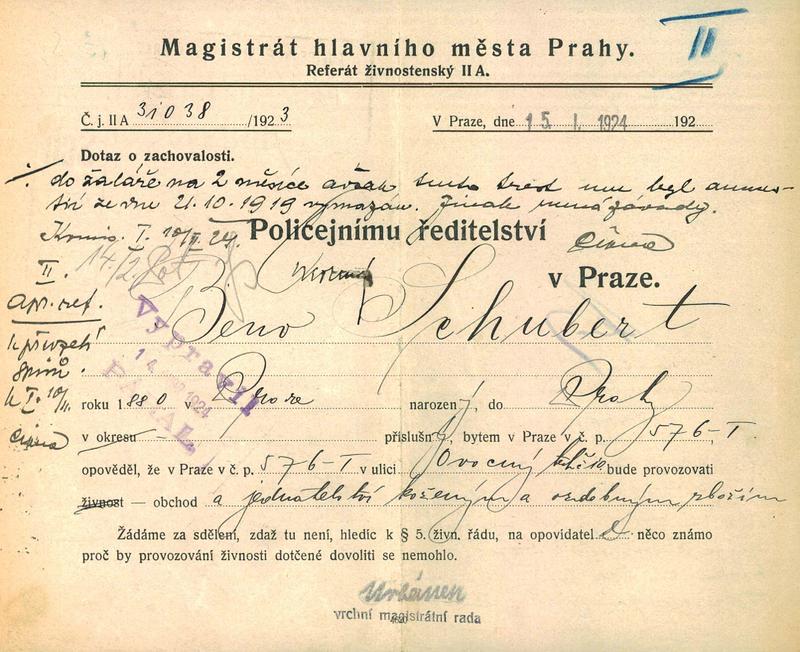 II
Magistrát hlavního města Prahy.
Referát živnostenský II A.
Č. j. II A 31038 /1923
V Praze, dne 15. I. 1924 192
Dotaz o zachovalosti.
do žaláře na 2 měsíce avšak tento trest mu byl amne-
stií ze dne 21.10.1919 vymazán. Jinak nemá závady.
Policejnímu ředitelství
v Praze.
II.
14/2
Vypravil
14 1924
Beno Schubert
roku 1880 v Praze narozený, do Prahy
v okresu příslušný, bytem v Praze v č. p. 576-I
opověděl, že v Praze v č. p. 576-I v ulici Ovocný trh č 10 bude provozovati
živnost — obchod a jednatelství koženým a ozdobným zbožím
Žádáme za sdělení, zdaž tu není, hledíc k § 5. živn. řádu, na opovídatele něco známo
proč by provozování živnosti dotčené dovoliti se nemohlo.
Urbánek
vrchní magistrátní rada